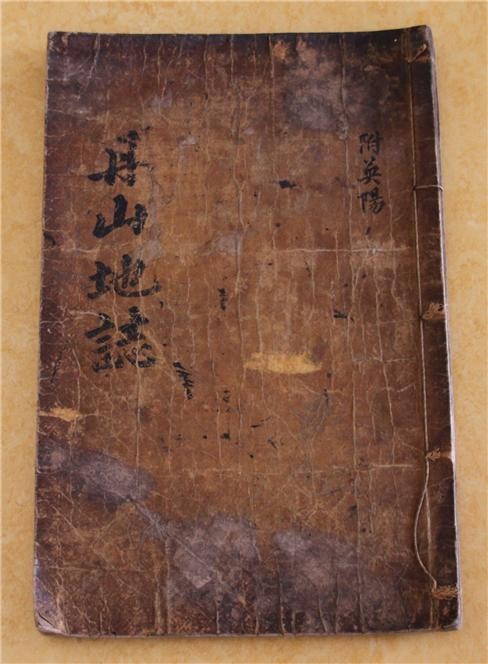 丹山地誌
附英陽